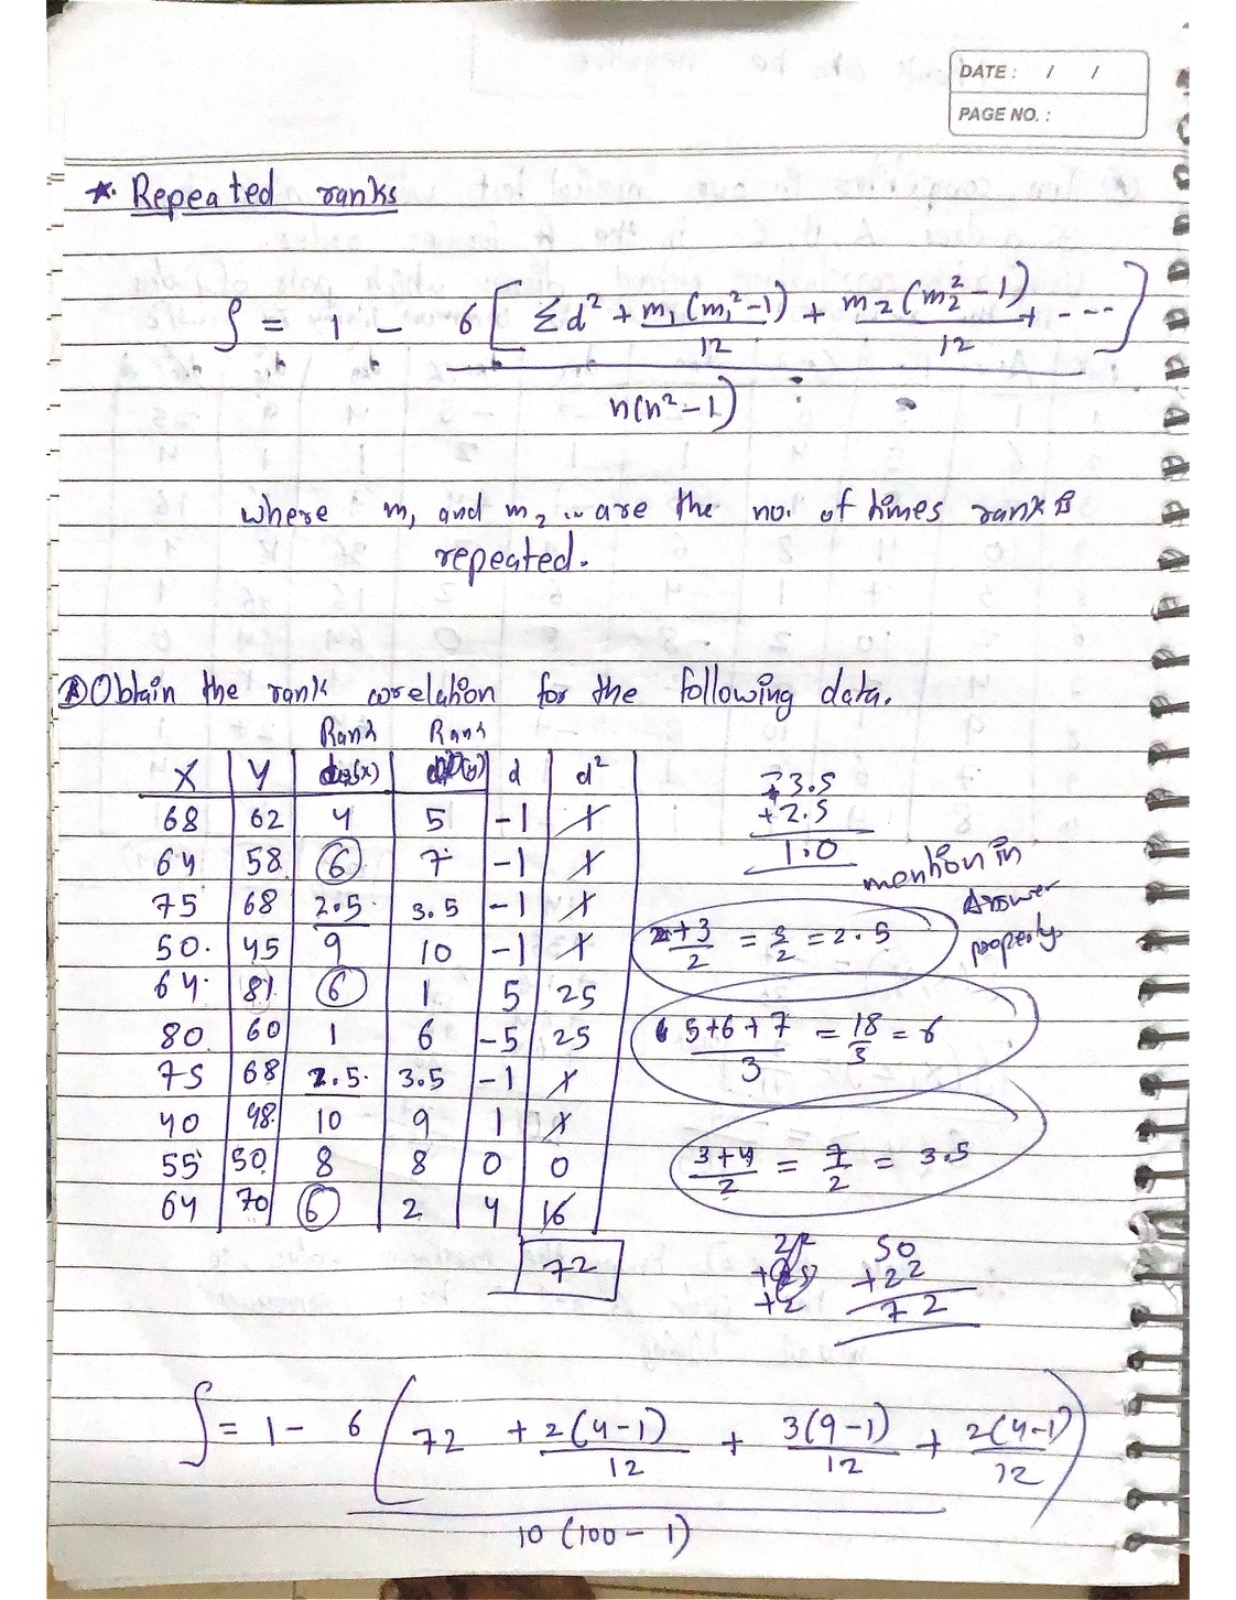 DATE : / /
PAGE NO. :
* Repeated ranks
ρ = 1 - 6 [ Σd² + m₁(m₁²-1)/12 + m₂(m₂²-1)/12 + --- ] / n(n²-1)
where m₁ and m₂ .. are the no. of times rank is
repeated.
Obtain the rank corelation for the following data.
Rank Rank
X Y (x) (y) d d²
68 62 4 5 -1 1
64 58 6 7 -1 1
75 68 2.5 3.5 -1 1
50. 45 9 10 -1 1
64. 81 6 1 5 25
80 60 1 6 -5 25
75 68 2.5. 3.5 -1 1
40 48 10 9 1 1
55 50 8 8 0 0
64 70 6 2 4 16
72
3.5
+2.5
1.0
mention in
Answer
properly.
2+3/2 = 5/2 = 2.5
5+6+7/3 = 18/3 = 6
3+4/2 = 7/2 = 3.5
+2
50
+22
72
ρ = 1 - 6 ( 72 + 2(4-1)/12 + 3(9-1)/12 + 2(4-1)/12 ) / 10(100-1)